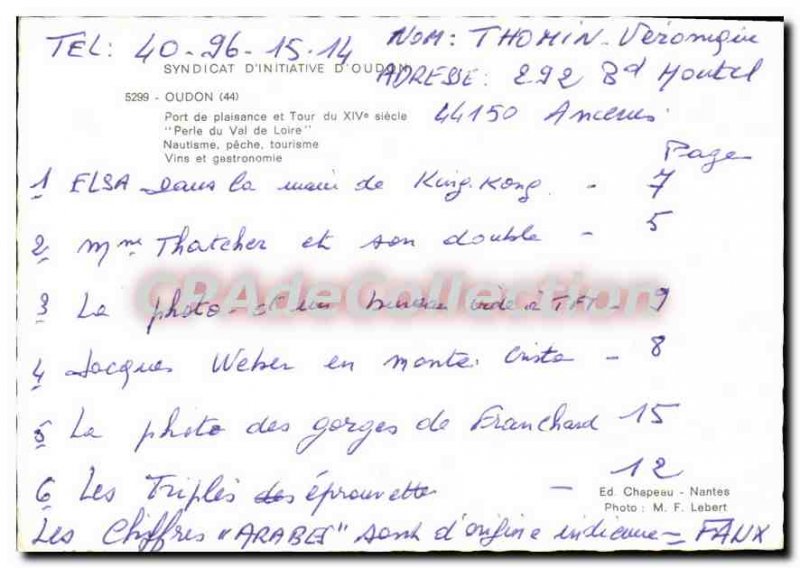 TEL: 40-96-15-14
NOM: THOMIN-Véronique
SYNDICAT D'INITIATIVE D'OUDON
ADRESSE: 292 Bd
5299 - OUDON (44)
44150 Ancenis
Port de plaisance et Tour du XIVe siècle
"Perle du Val de Loire"
Nautisme, pêche, tourisme
Vins et gastronomie
Page
1 ELSA dans la main de King-Kong - 7
2 Mme Thatcher et son double - 5
CPAdeCollection
3 La photo d'un bureau vide à TF1 - 9
4 Jacques Weber en monte Cristo - 8
5 La photo des gorges de Franchard 15
6 Les Triplés éprouvettes - 12
Ed. Chapeau - Nantes
Photo : M. F. Lebert
Les Chiffres "ARABES" sont d'origine indienne = FAUX